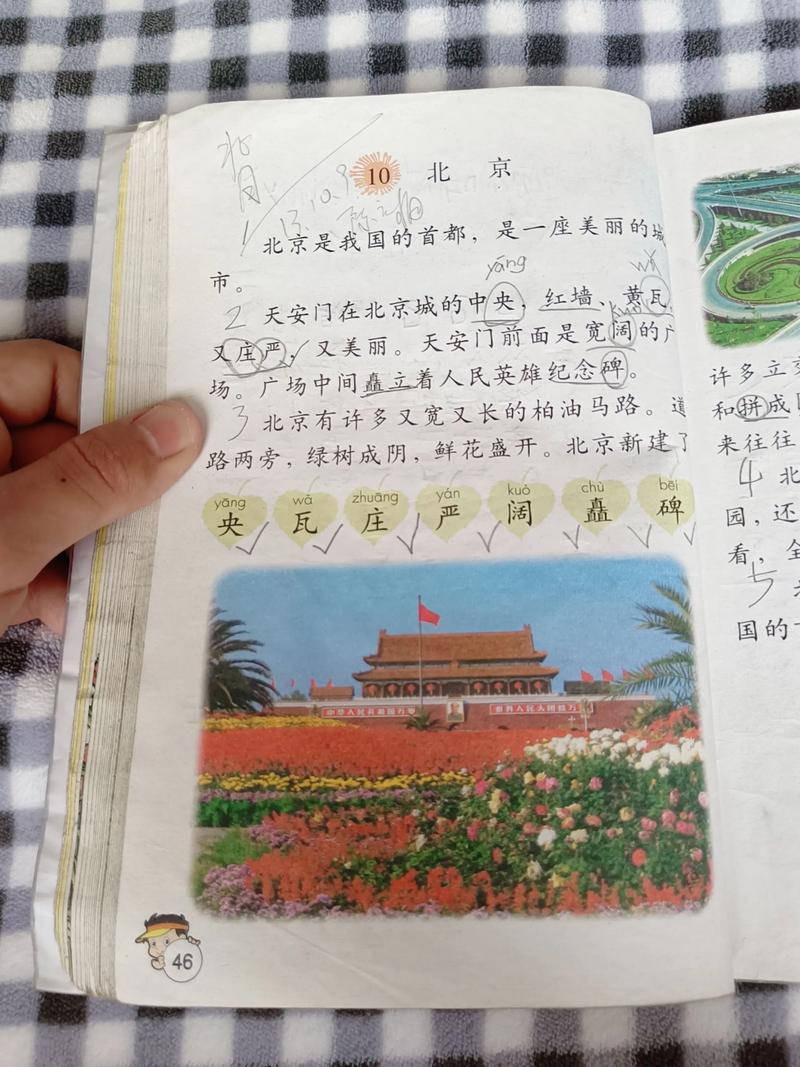 10 北京
13.10.9
1 北京是我国的首都，是一座美丽的城
市。
yāng wǎ
2 天安门在北京城的中央，红墙、黄瓦，
kuò
又庄严，又美丽。天安门前面是宽阔的广
场。广场中间矗立着人民英雄纪念碑。
3 北京有许多又宽又长的柏油马路。道
路两旁，绿树成阴，鲜花盛开。北京新建了
yāng wǎ zhuāng yán kuò chù bēi
央 瓦 庄 严 阔 矗 碑
中华人民共和国万岁 世界人民大团结万岁
46
许多立交
和拼成
来往往
4 北
园，还
看，全
5
国的一